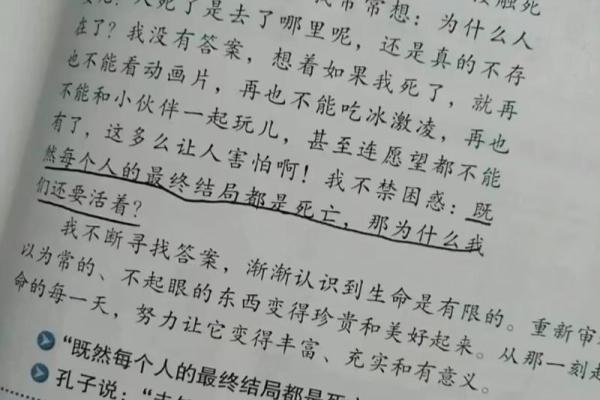 常常想：为什么人
死了是去了哪里呢，还是真的不存
在了？我没有答案，想着如果我死了，就再
也不能看动画片，再也不能吃冰激凌，再也
不能和小伙伴一起玩儿，甚至连愿望都不能
有了，这多么让人害怕啊！我不禁困惑：既
然每个人的最终结局都是死亡，那为什么我
们还要活着？
我不断寻找答案，渐渐认识到生命是有限的。重新审
以为常的、不起眼的东西变得珍贵和美好起来。从那一刻起
命的每一天，努力让它变得丰富、充实和有意义。
“既然每个人的最终结局都是死
孔子说：“未